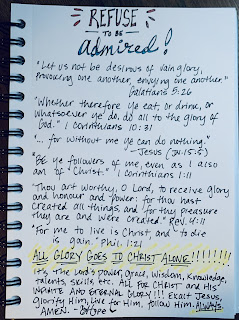 REFUSE
TO BE
Admired!
"Let us not be desirous of vain glory,
provoking one another, envying one another."
Galatians 5:26
"Whether therefore ye eat, or drink, or
whatsoever ye do, do all to the glory of
God." 1 Corinthians 10:31
"... for without me ye can do nothing."
~Jesus (Jn. 15:5)
"BE ye followers of me, even as I also
am of Christ." 1 Corinthians 1:11
"Thou art worthy, O Lord, to receive glory
and honour and power: for thou hast
created all things, and for thy pleasure
they are and were created." Rev. 4:11
"For me to live is Christ, and to die
is gain." Phil. 1:21
ALL GLORY GOES TO CHRIST ALONE!!!!!!!!
It's The Lord's power, grace, wisdom, knowledge,
talents, skills etc. ALL FOR CHRIST and HIS
INFINITE AND ETERNAL GLORY!!! Exalt Jesus,
glorify Him, live for Him, follow Him. ALWAYS.
AMEN.